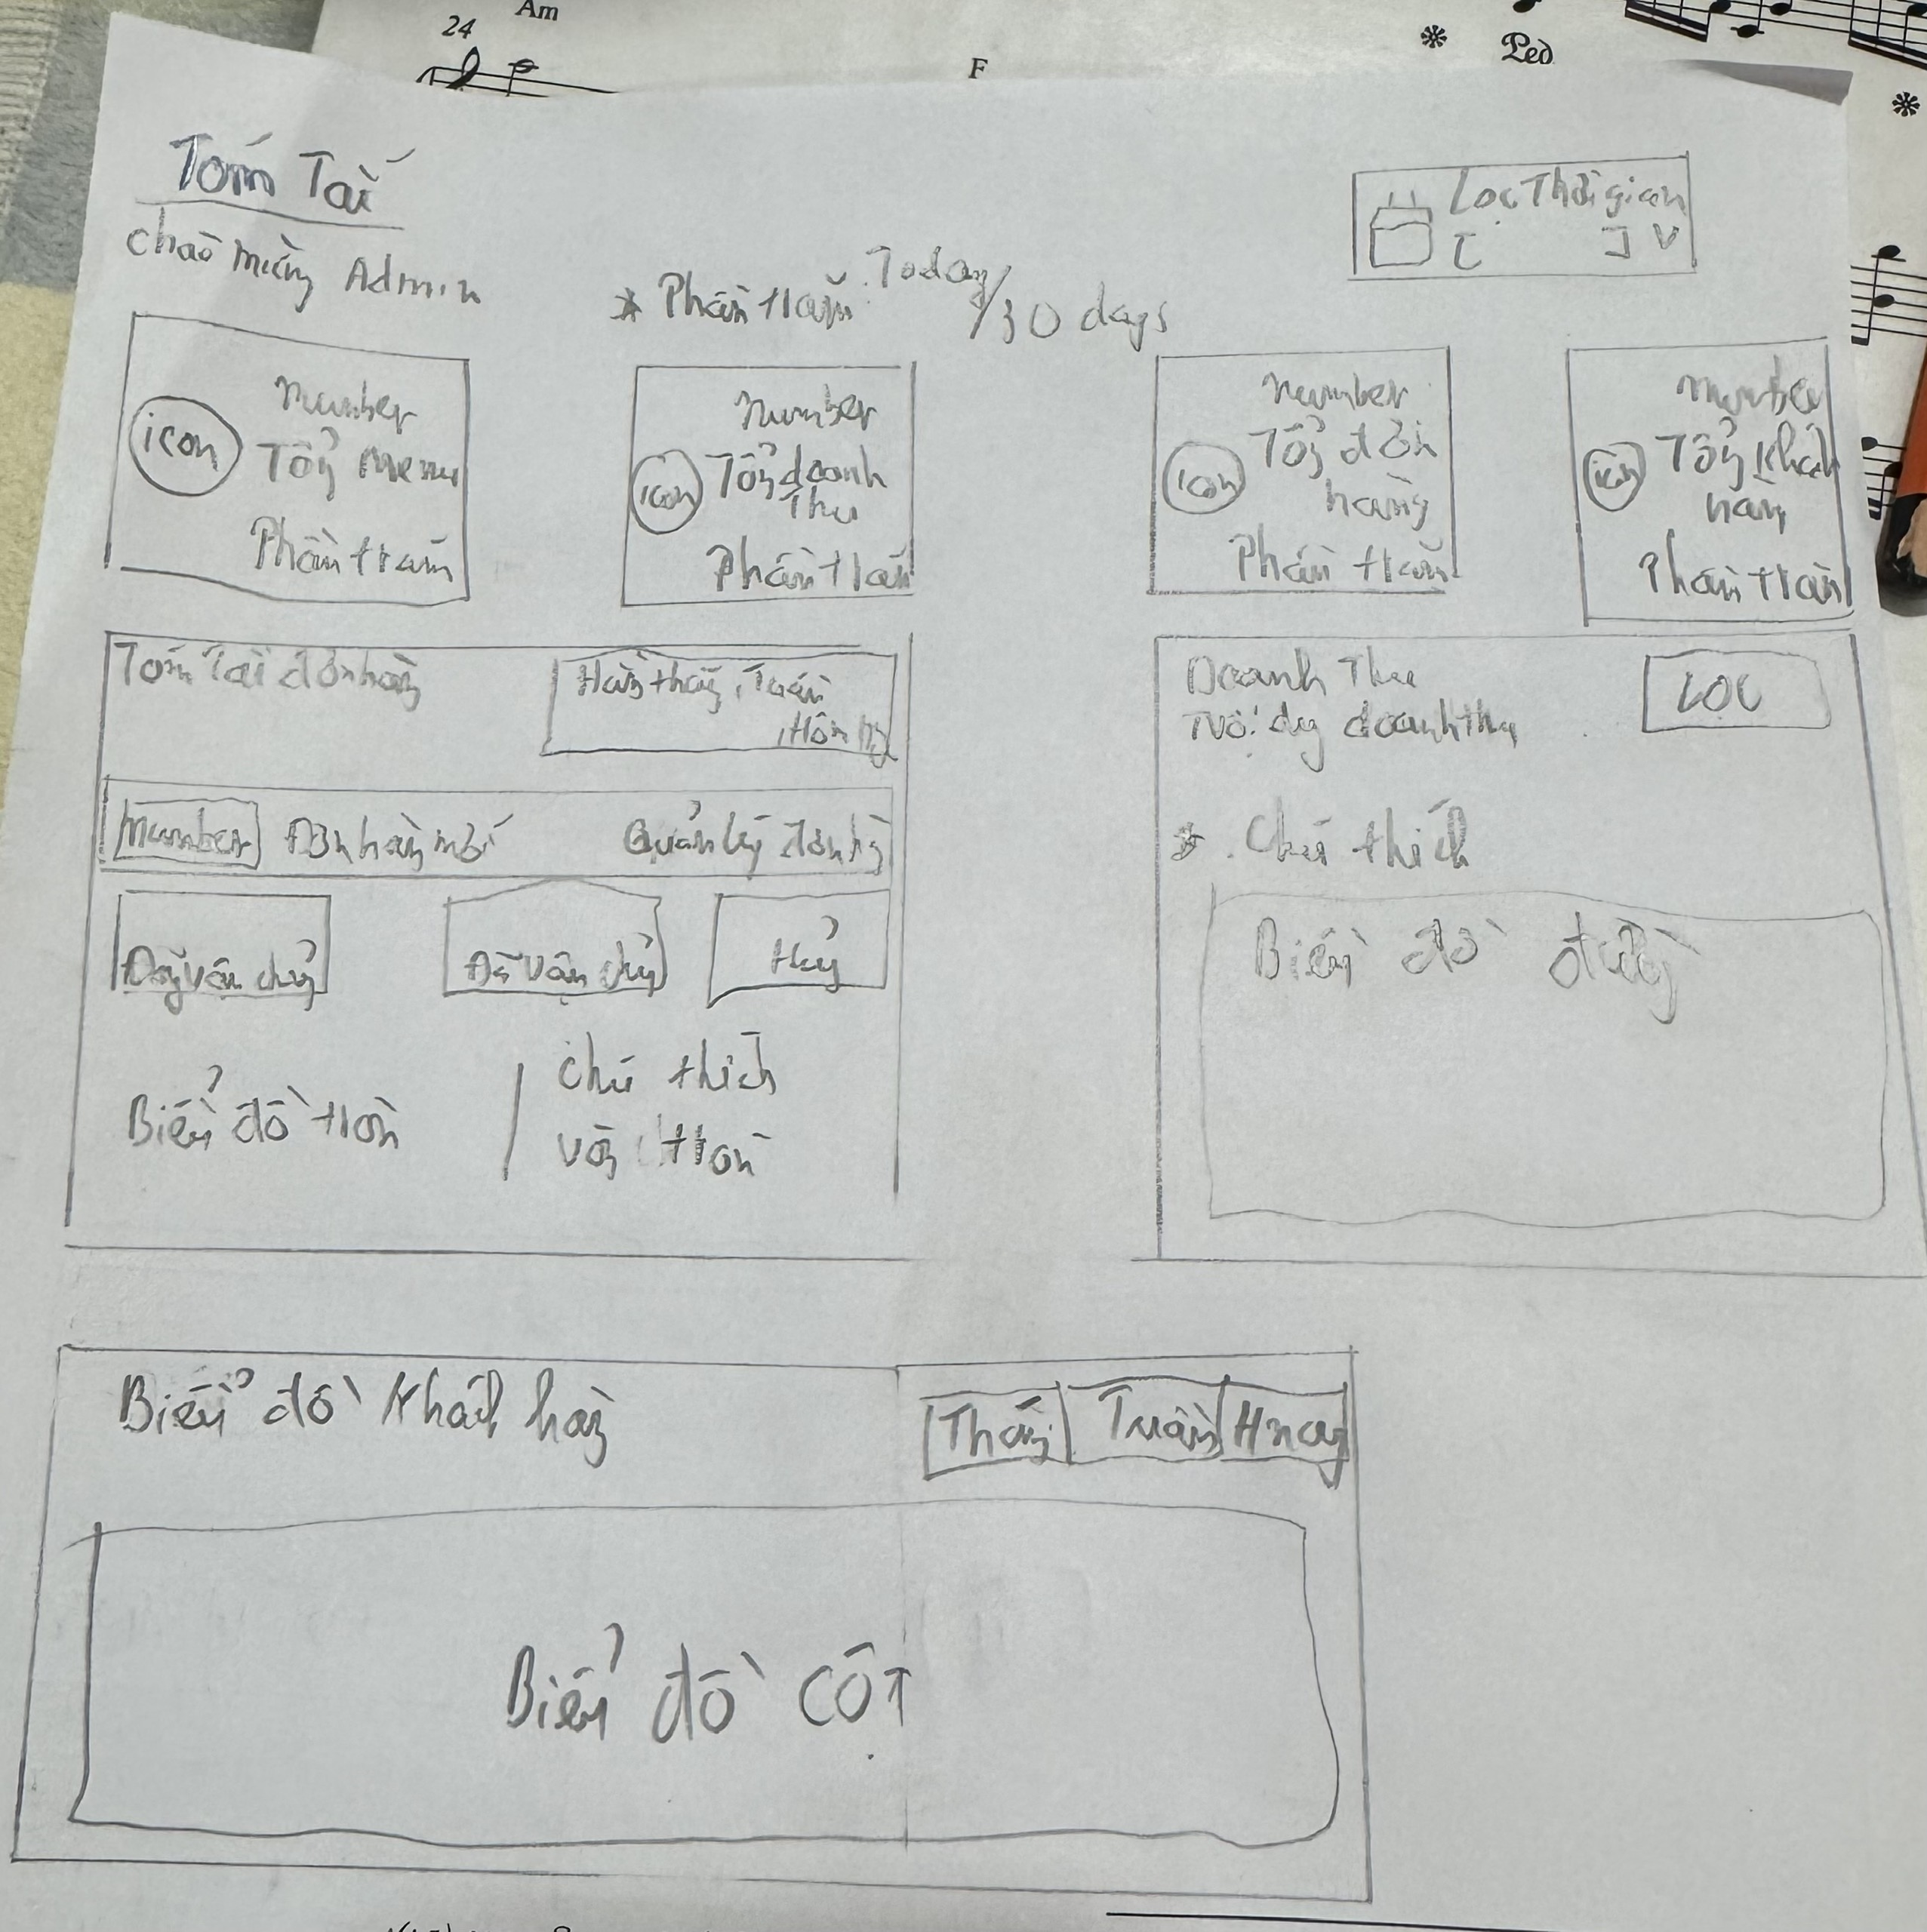 24
Am
F
Ped
Tóm Tắt
Lọc Thời gian
chào mừng Admin
* Phần trăm: Today/30 days
icon
Number
Tổng Menu
Phần trăm
icon
Number
Tổng doanh
Thu
Phần trăm
icon
number
Tổng đơn
hàng
Phần trăm
icon
number
Tổng khách
hàng
Phần trăm
Tóm Tắt đơn hàng
Hàng tháng, Tuần
, Hôm nay
Number
Đơn hàng mới
Quản lý đơn hàng
Đang vận chuyển
Đã vận chuyển
Hủy
Biểu đồ tròn
chú thích
vòng tròn
Doanh Thu
doanh thu
LỌC
* . Chú thích
Biểu đồ đường
Biểu đồ Khách hàng
Tháng
Tuần
Hnay
Biểu đồ CỘT